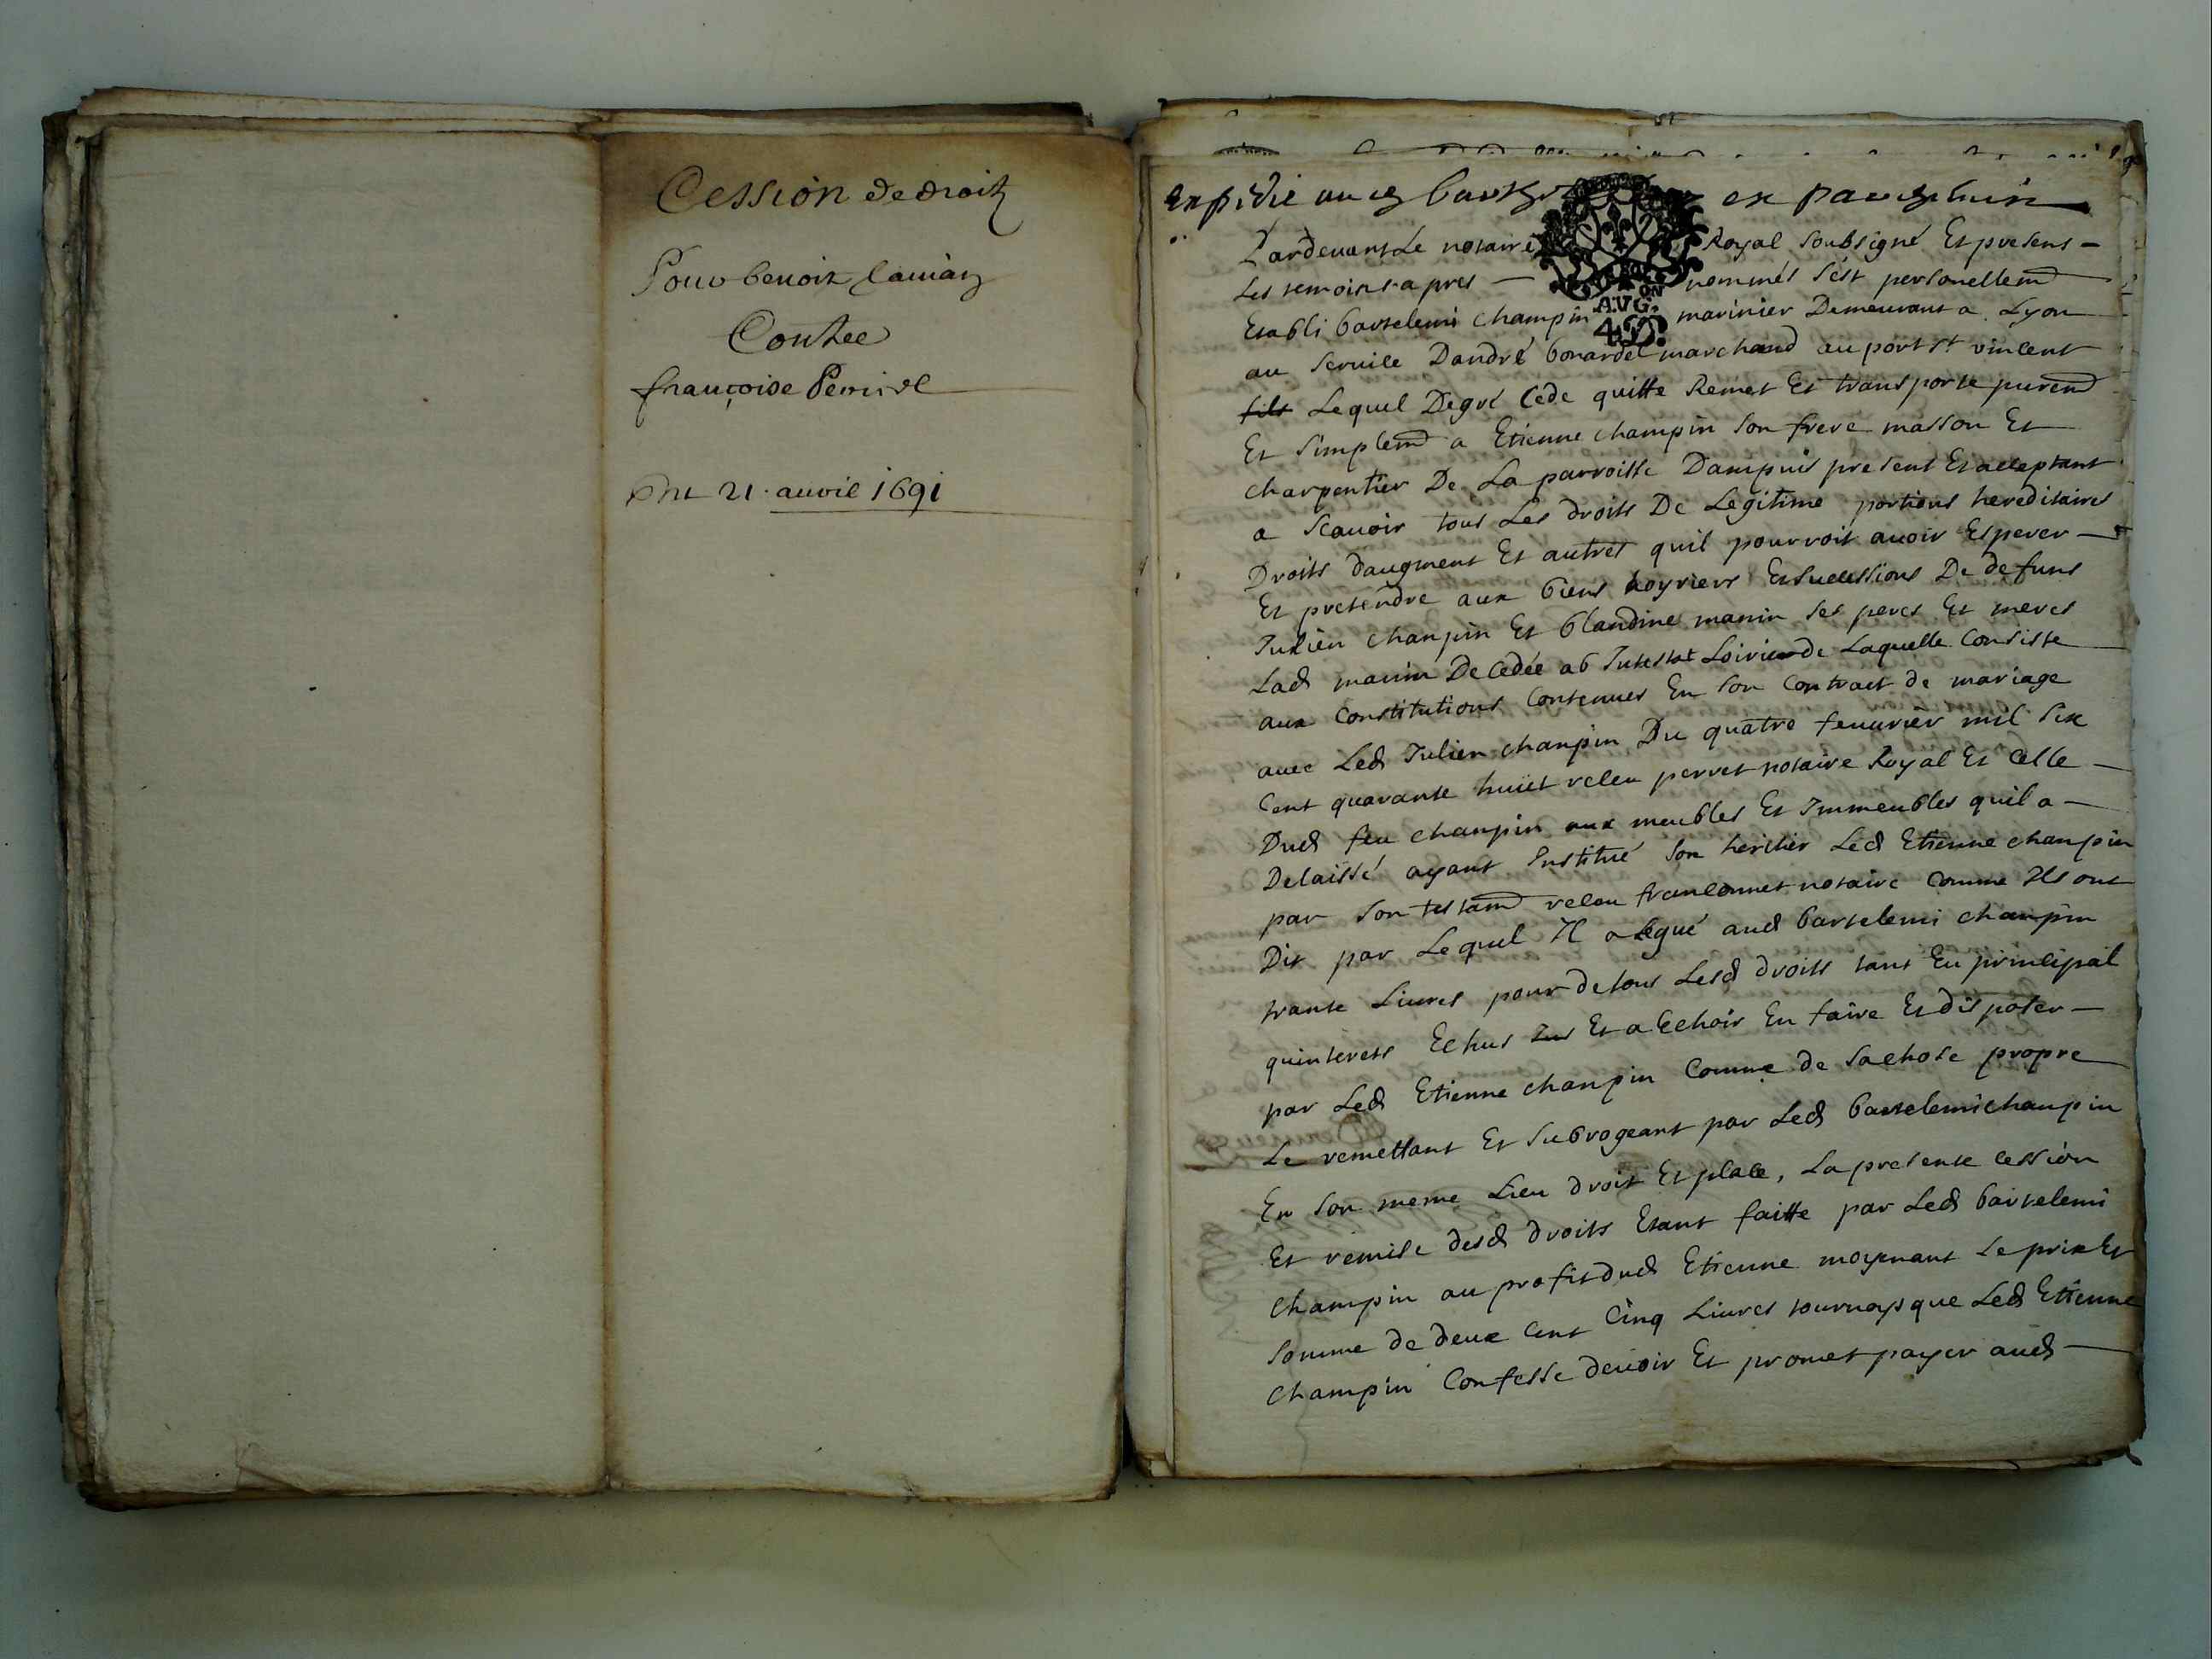 Cession de droit
Pour benoit
Contre
françoise
Du 21. auril 1691
expedie aud en parchemin
Pardeuant Le notaire Royal Soubsigné Et presens
Les temoins apres nommés s'est personellemt
Establi bartelemi champin marinier Demeurant a Lyon
AVG.
4D.
au seruice D'andré bonardel marchand au port st vincent
fils Lequel Degré Cede quitte Remet Et transporte puremt
Et simplemt a Etienne champin son frere masson Et
charpentier De La parroisse Dampuis present Et acceptant
a scauoir tous Les droits De Legitime portions hereditaires
Droits daugment Et autres quil pourroit auoir Esperer
Et pretendre aux biens hoyries Et successions De defuns
Julien champin Et blandine manin ses peres Et meres
Lad manin Decedée ab Intestat Loirie de Laquelle Consiste
aux Constitutions Contenues En son Contract de mariage
auec Led Julien champin Du quatre feuurier mil six
Cent quarante huict receu perret notaire Royal Et Celle
Dud feu champin aux meubles Et Immeubles quil a
Delaissé ayant Institué son heritier Led Etienne champin
par son testamt receu notaire Comme Ils ont
Dit par Lequel Il a legué aud bartelemi champin
trante Liures pour de tous Lesd droits tant En principal
quinterets Echus Ins Et a Echoir En faire Et disposer
par Led Etienne champin Comme de sa chose propre
Le remettant Et subrogeant par Led bartelemi champin
En son meme Lieu droit Et place, La presente cession
Et remise desd droits Etant faitte par Led bartelemi
Champin au profit dud Etienne moyenant Le prix Et
somme de deux Cent Cinq Liures tournoys que Led Etienne
Champin Confesse deuoir Et promet payer aud